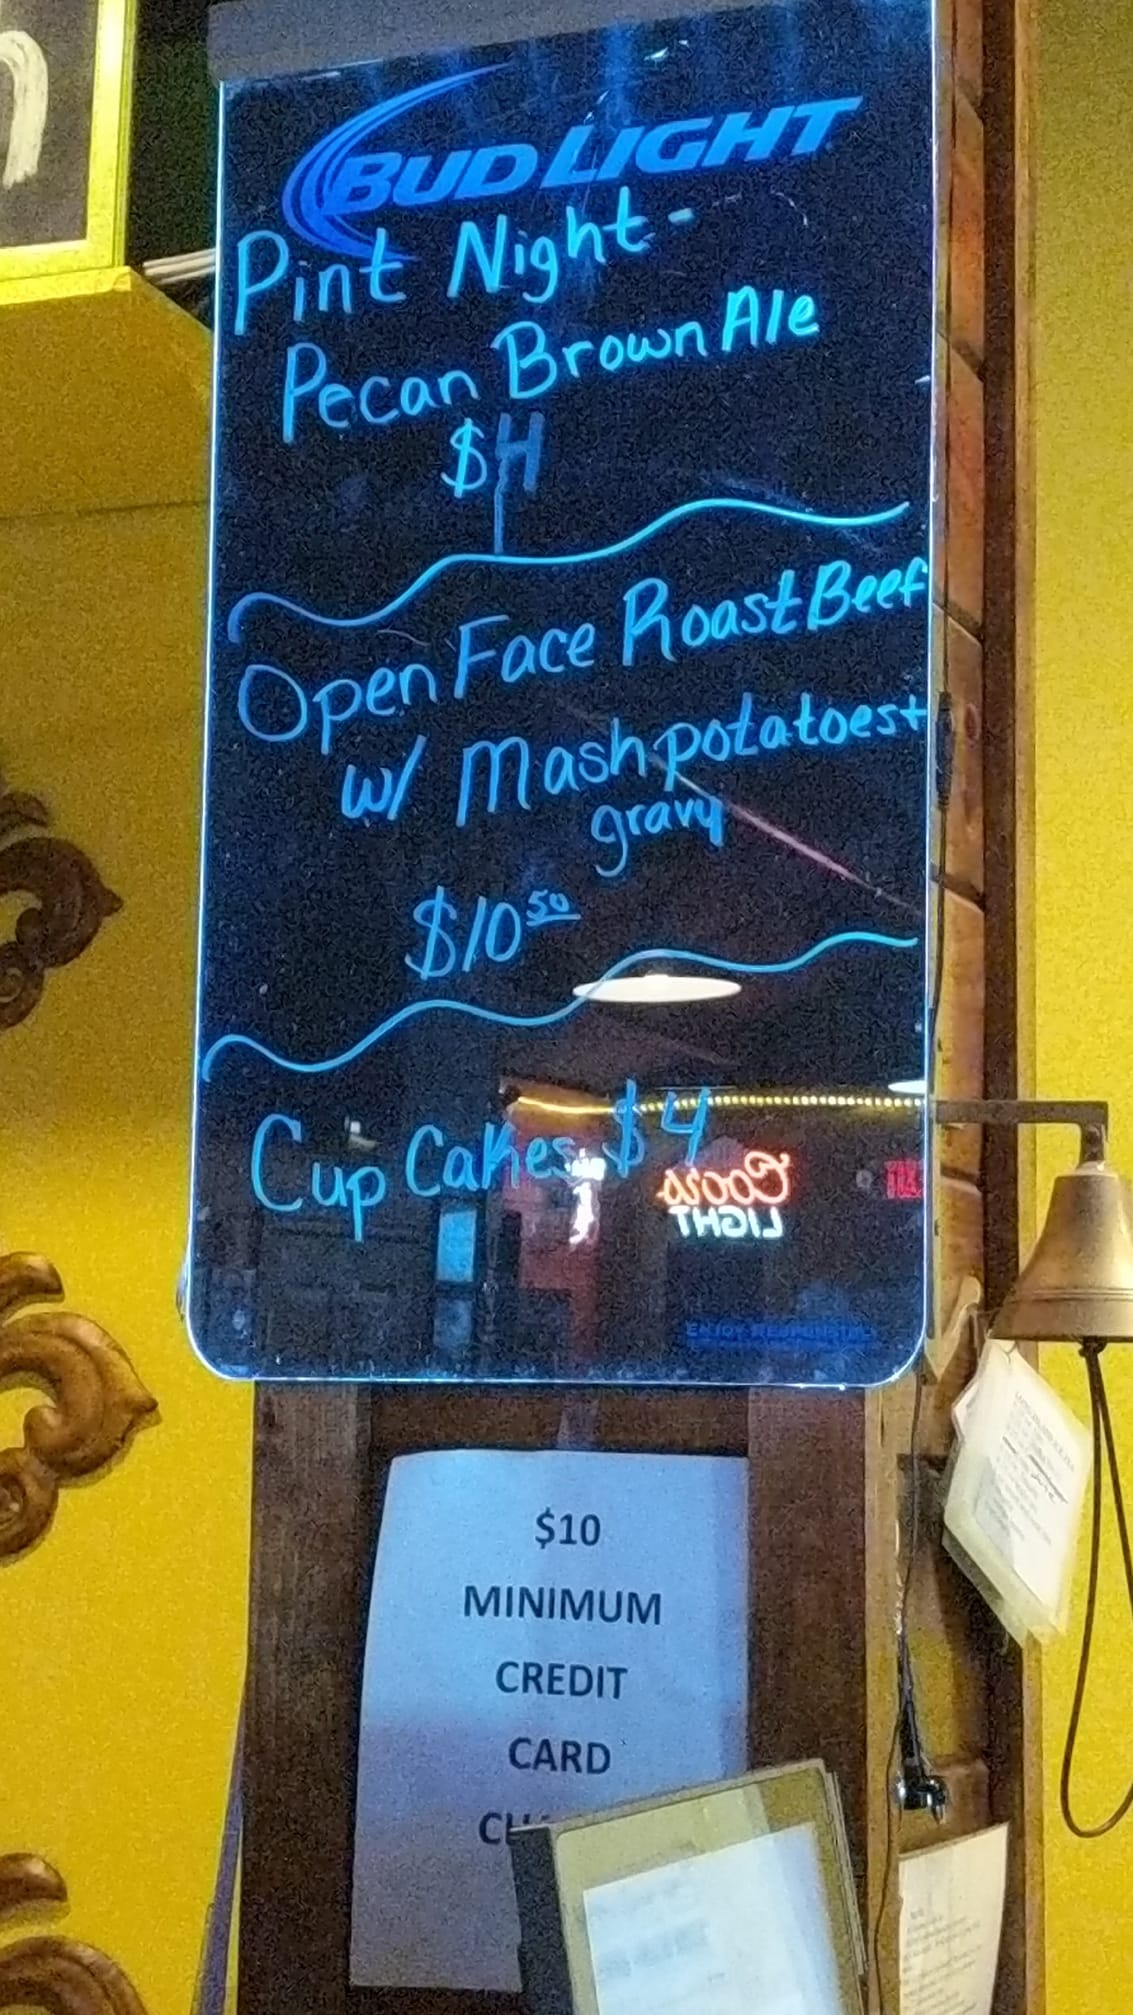 BUD LIGHT
Pint Night -
Pecan Brown Ale
$4
Open Face Roast Beef
w/ Mash potatoes +
gravy
$10 50
Cup Cakes $4
Coors
LIGHT
$10
MINIMUM
CREDIT
CARD